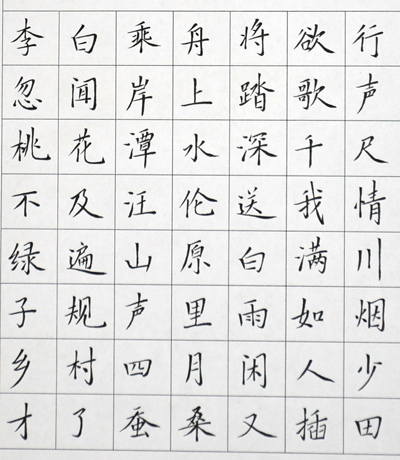 李白乘舟将欲行
忽闻岸上踏歌声
桃花潭水深千尺
不及汪伦送我情
绿遍山原白满川
子规声里雨如烟
乡村四月闲人少
才了蚕桑又插田